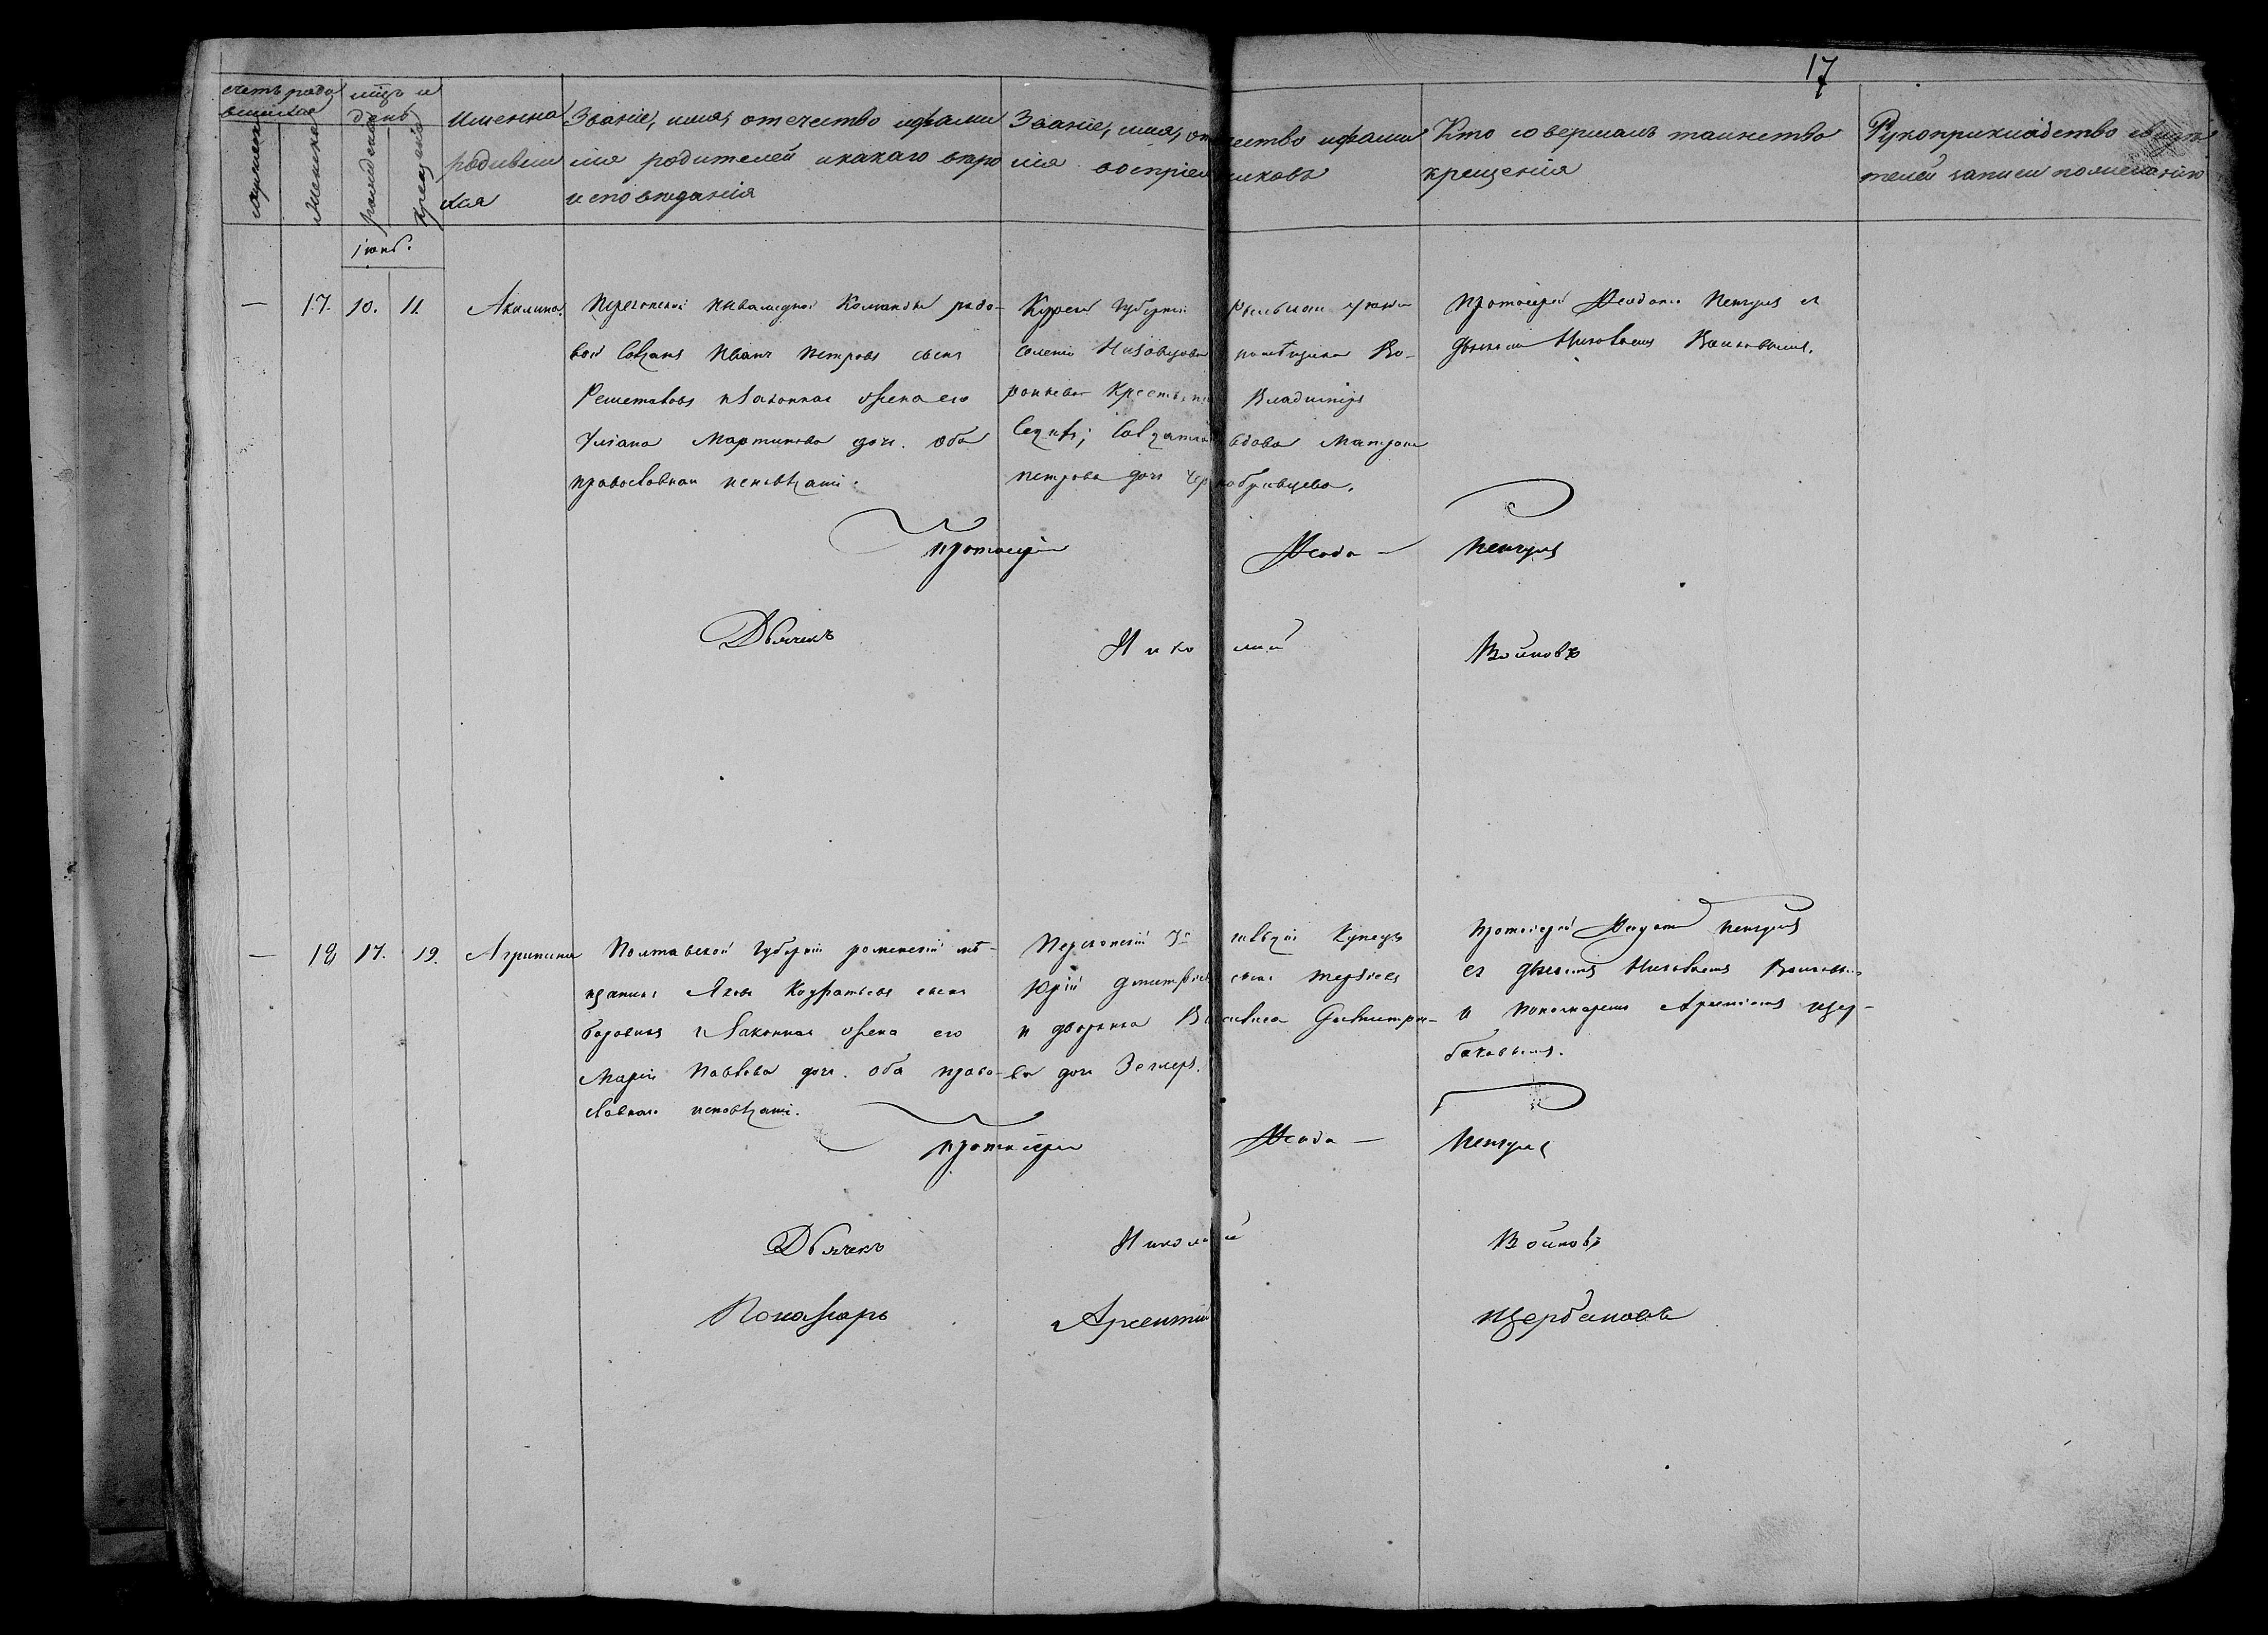 17
счетъ родившихся
мужеска
женска
мѣсцъ и день
рожденія
крещенія
Имена родившихся
Званіе, имя, отечество и фамилія родителей и какого вѣроисповѣданія
Званіе, имя, отчество и фамилія воспріемниковъ
Кто совершалъ таинство крещенія
Рукоприкладство свидѣтелей записи по желанію
Іюнь.
— 17. 10. 11. Акилина
Перекопской инвалидной команды рядо-
вой Солдатъ Иванъ Петровъ сынъ
Решетовъ и законная жена его
Уліана Мартинова дочь. оба
православнаго исповѣданія.
Курской губерніи Рыльскаго уѣзда
селенія помѣщика Во-
Крестьянинъ Владиміръ
Солдатская вдова Матрона
Петрова дочь Чернобривцева.
Протоіерей Пенчулъ съ
дьячкомъ Николаемъ Войновымъ.
Протоіерей Пенчулъ
Дьячекъ Николай Войновъ
— 18. 17. 19. Агрипина
Полтавской губерніи роменскій мѣ-
щанинъ Яковъ Кодратьевъ сынъ
и Законная жена его
Марія Павлова дочь. оба право-
славнаго исповѣданія.
Перекопскій 3й гильдіи Купецъ
Юрій Дмитріевъ сынъ
и дворянка Димитріе-
ва дочь
Протоіерей Пенчулъ
съ дьячкомъ Николаемъ Войновымъ
и пономаремъ Арсеніемъ Щер-
баковымъ.
Протоіерей Пенчулъ
Дьячекъ Николай Войновъ
Понамарь Арсентій Щербаковъ